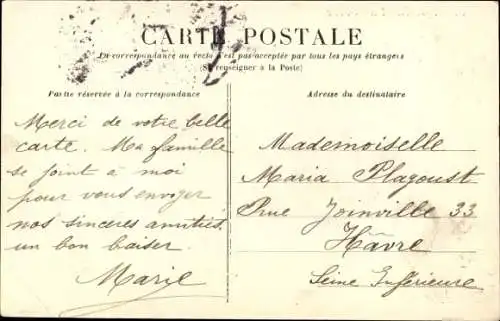 CARTE POSTALE
La correspondance au recto n'est pas acceptée par tous les pays étrangers
(Se renseigner à la Poste)
Partie réservée à la correspondance
Adresse du destinataire
Merci de votre belle
carte. Ma famille
se joint à moi
pour vous envoyer
nos sincères amitiés,
un bon baiser.
Marie
Mademoiselle
Maria Plagoust
Rue Joinville 33
Hâvre
Seine Inférieure